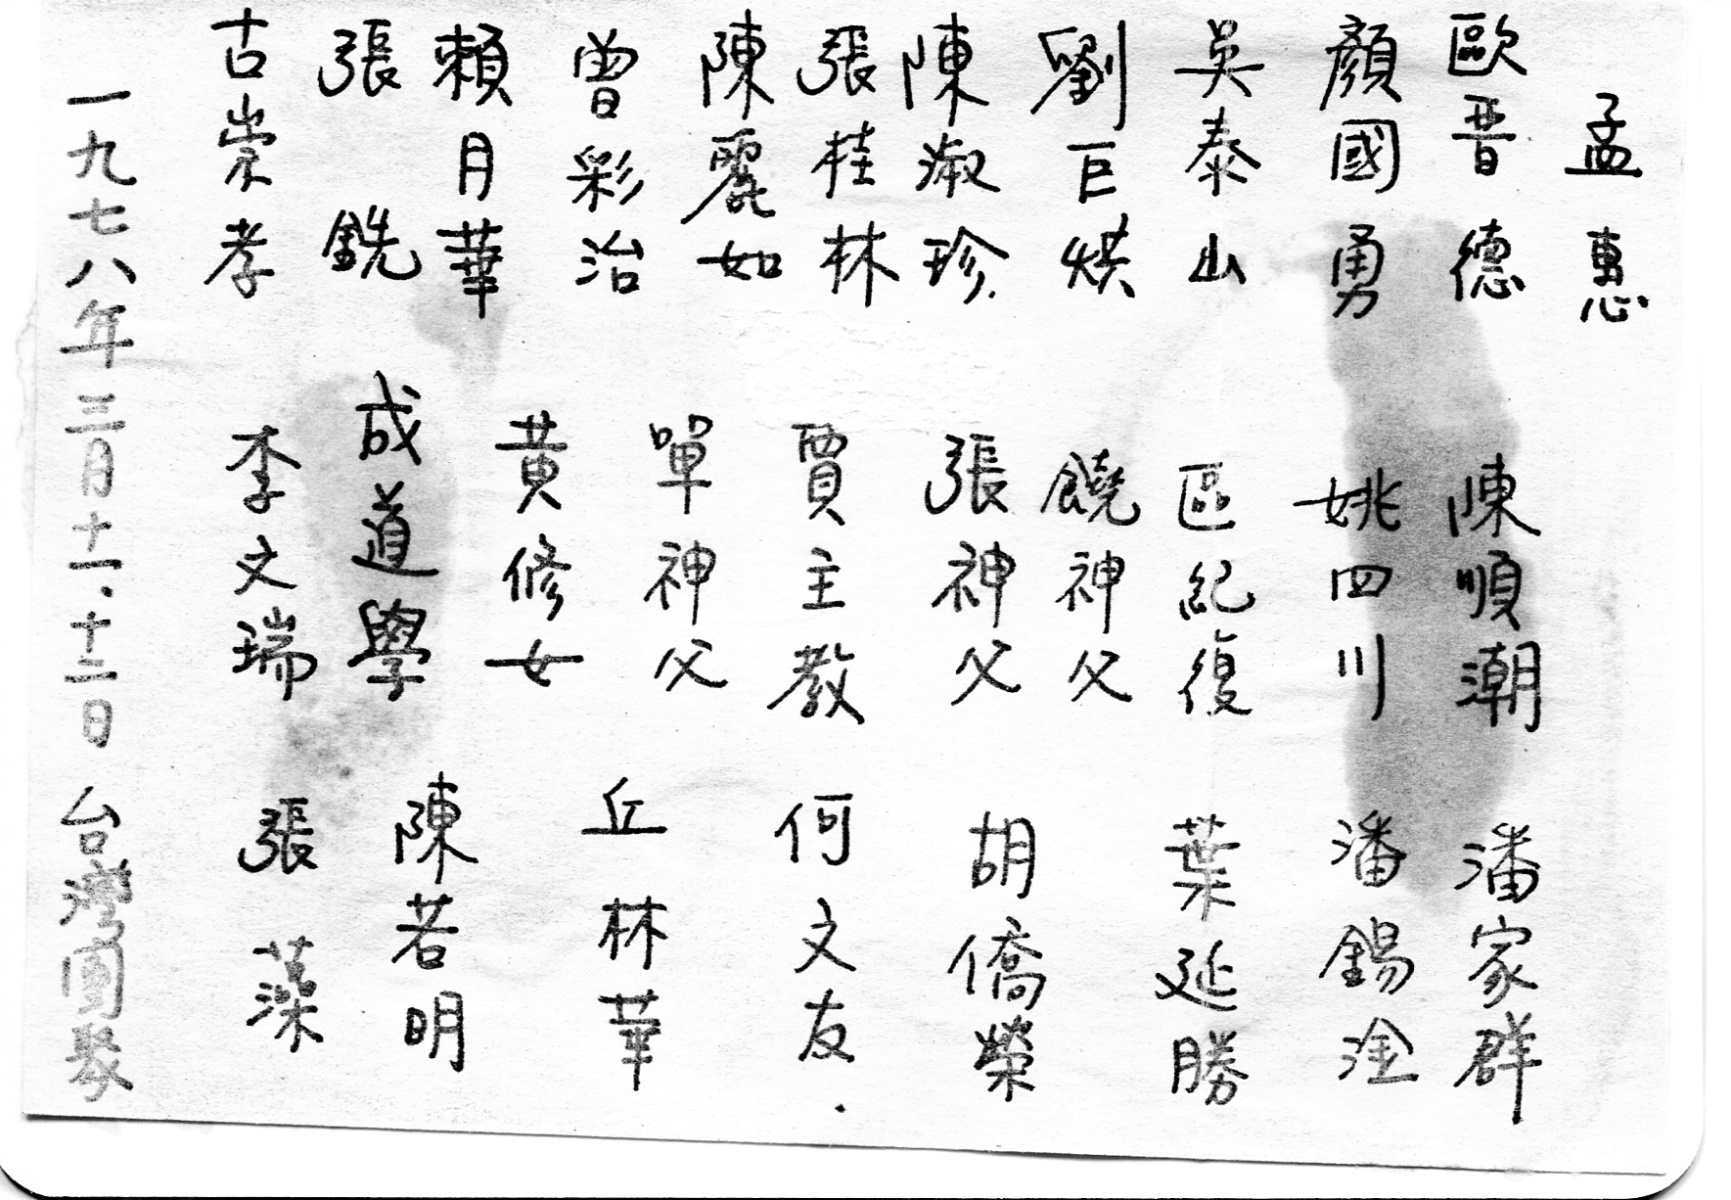 孟惠
歐晋德
顏國勇
吳泰山
劉巨烘
陳淑珍
張桂林
陳麗如
曾彩治
賴月華
張銑
古崇孝
陳順潮
姚四川
區紀復
饒神父
張神父
賈主教
單神父
黃修女
成道學
李文瑞
潘家群
潘錫淦
葉延勝
胡僑榮
何文友
丘林華
陳若明
張藻
一九七八年三月十一、十二日 台灣團聚